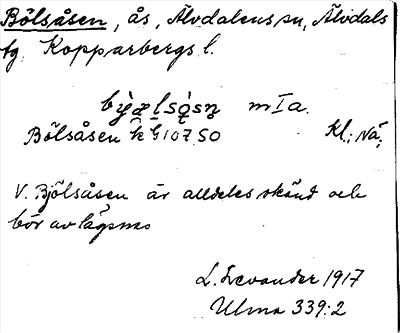 Bölsåsen, ås, Älvdalens sn, Älvdals
tg. Kopparbergs l.
býælsǫ̀sn̥ m I a.
Bölsåsen k G 107 SO Kl.: Nä;
V. Bjölsåsen är alldeles okänd och
bör avlägsnas
L. Levander 1917
Ulma 339:2